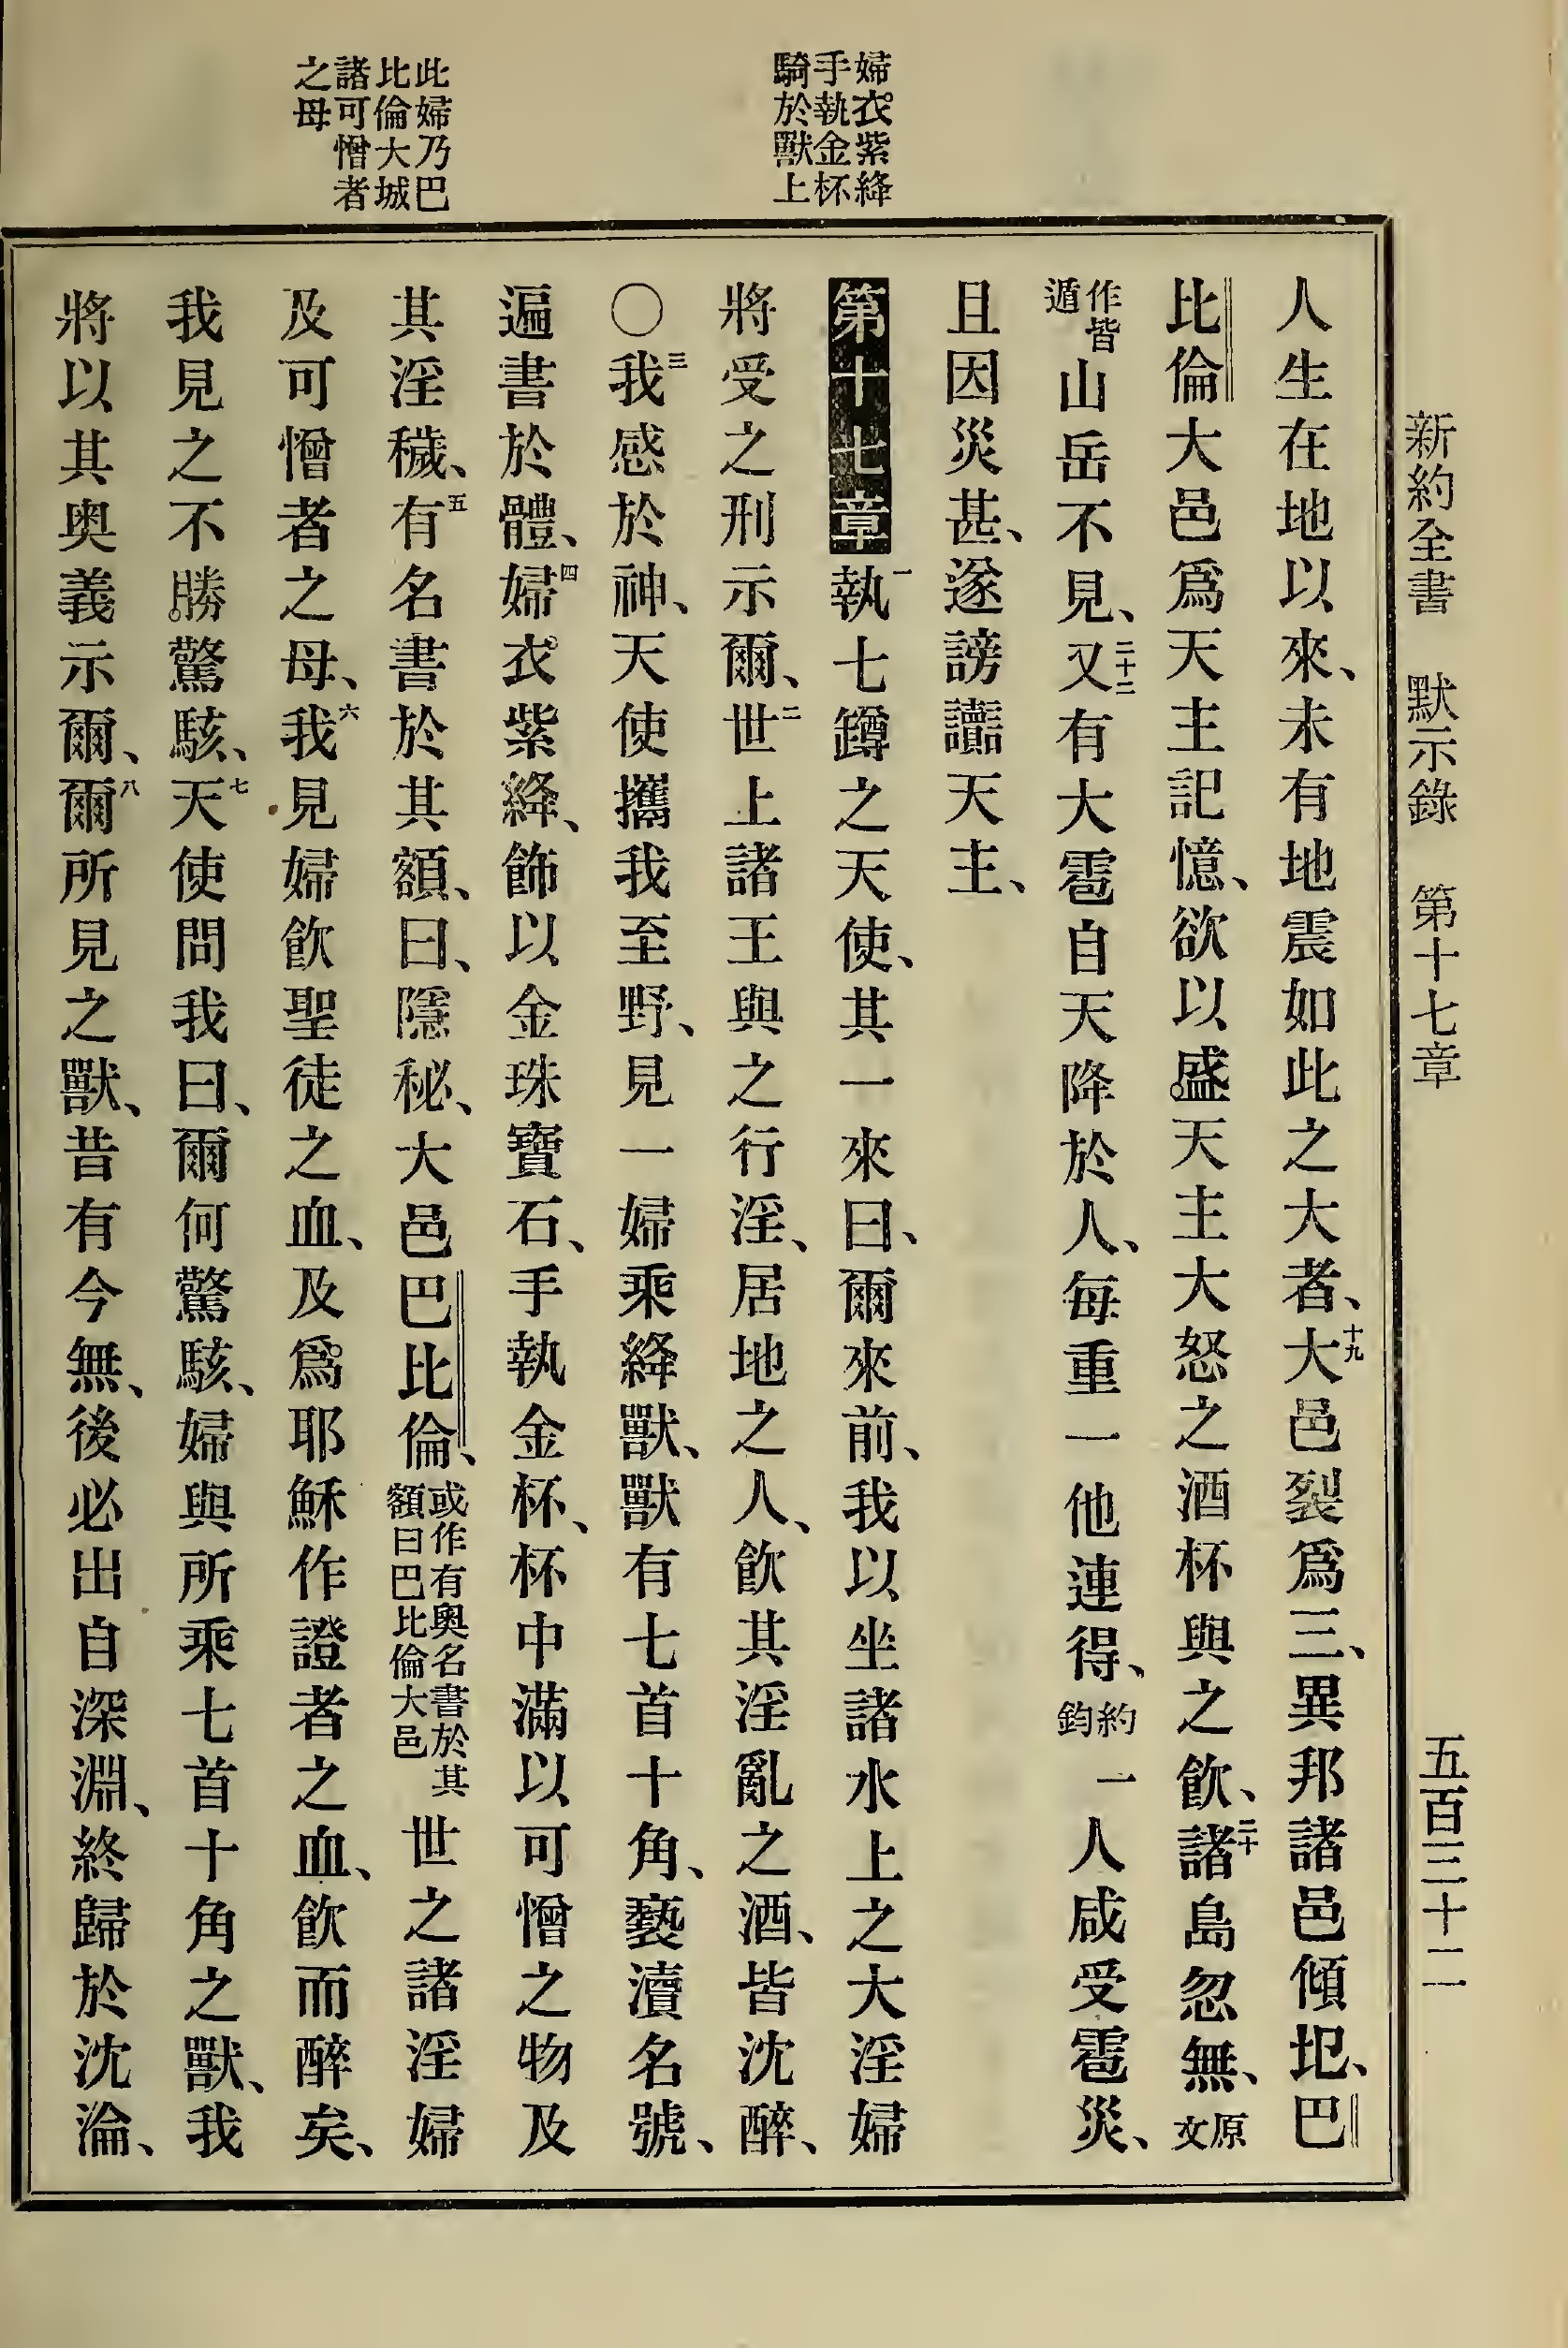 新約全書 默示錄 第十七章 五百三十二
婦衣紫絳
手執金杯
騎於獸上
此婦乃巴
比倫大城
諸可憎者
之母
人生在地以來、未有地震如此之大者、十九大邑裂爲三、異邦諸邑傾圯、巴
比倫大邑爲天主記憶、欲以盛天主大怒之酒杯與之飲、二十諸島忽無、原文
作皆遁山岳不見、二十一又有大雹自天降於人、每重一他連得、約一鈞人咸受雹災、
且因災甚、遂謗讟天主、
第十七章一執七罇之天使、其一來曰、爾來前、我以坐諸水上之大淫婦
將受之刑示爾、二世上諸王與之行淫、居地之人、飲其淫亂之酒、皆沈醉、
〇三我感於神、天使攜我至野、見一婦乘絳獸、獸有七首十角、褻瀆名號、
遍書於體、四婦衣紫絳、飾以金珠寶石、手執金杯、杯中滿以可憎之物及
其淫穢、五有名書於其額、曰、隱秘、大邑巴比倫、或作有奧名書於其額曰巴比倫大邑世之諸淫婦
及可憎者之母、六我見婦飲聖徒之血、及爲耶穌作證者之血、飲而醉矣、
我見之不勝驚駭、七天使問我曰、爾何驚駭、婦與所乘七首十角之獸、我
將以其奧義示爾、八爾所見之獸、昔有今無、後必出自深淵、終歸於沈淪、